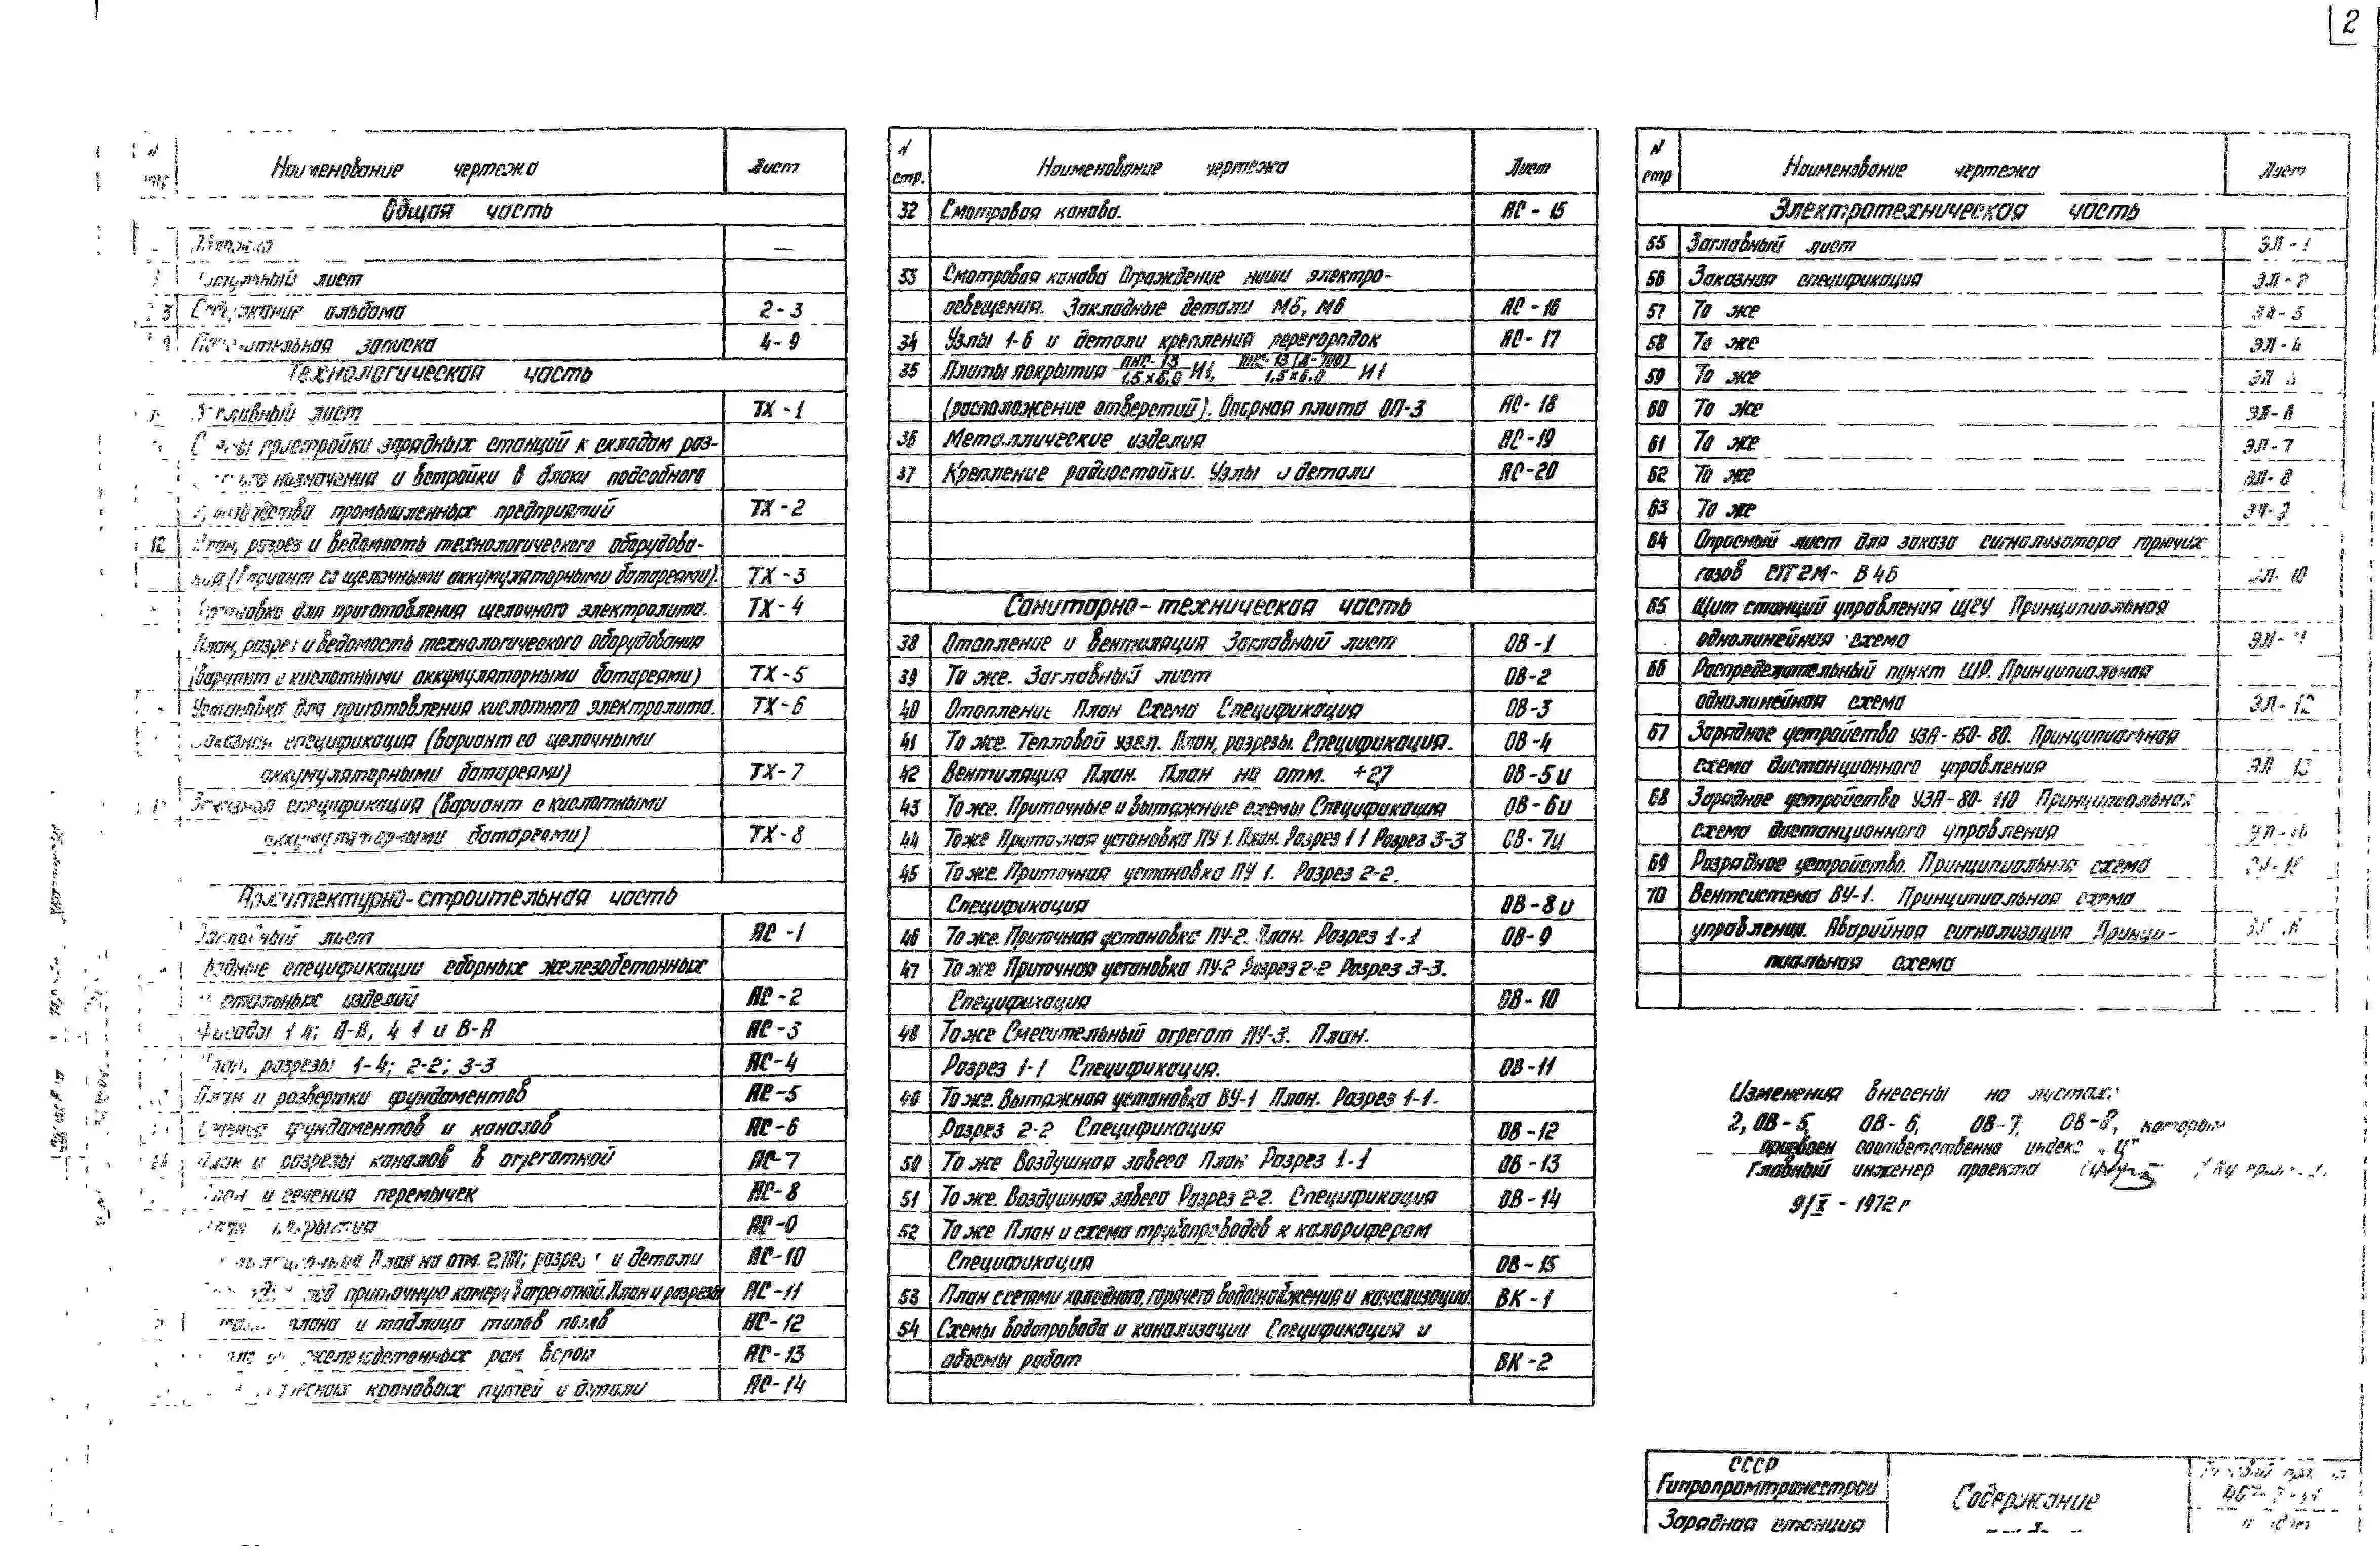 2
Наименование чертежа Лист
Общая часть
Обложка —
лист
3 Содержание альбома 2-3
Пояснительная записка 4-9
Технологическая часть
Заглавный лист ТХ-1
Схемы пристройки зарядных станций к складам раз-
назначения и встройки в блоки подсобного
хозяйства промышленных предприятий ТХ-2
12 План, разрез и ведомость технологического оборудова-
ния (Вариант со щелочными аккумуляторными батареями). ТХ-3
Установка для приготовления щелочного электролита. ТХ-4
План, разрез и ведомость технологического оборудования
(Вариант с кислотными аккумуляторными батареями) ТХ-5
Установка для приготовления кислотного электролита. ТХ-6
Заказная спецификация (Вариант со щелочными
аккумуляторными батареями) ТХ-7
Заказная спецификация (Вариант с кислотными
аккумуляторными батареями) ТХ-8
Архитектурно-строительная часть
Заглавный лист АС-1
спецификации сборных железобетонных
изделий АС-2
Фасады 1-4; А-В, 4-1 и В-А АС-3
План, разрезы 1-4; 2-2; 3-3 АС-4
План и развертки фундаментов АС-5
Сечения фундаментов и каналов АС-6
План и разрезы каналов в агрегатной АС-7
План и сечения перемычек АС-8
План покрытия АС-9
План на отм. 2.700; разрез и детали АС-10
под приточную камеру в агрегатной. План и разрезы АС-11
плана и таблица типов полов АС-12
железобетонных рам ворот АС-13
крановых путей и детали АС-14
N стр. Наименование чертежа Лист
32 Смотровая канава. АС-15
33 Смотровая канава Ограждение ниши электро-
освещения. Закладные детали М5, М6 АС-16
34 Узлы 1-6 и детали крепления перегородок АС-17
35 Плиты покрытия ПНС-13 / 1,5×6,0 И1, ПНС-13 (Д-700) / 1,5×6,0 И1
(расположение отверстий). Опорная плита ОП-3 АС-18
36 Металлические изделия АС-19
37 Крепление радиостойки. Узлы и детали АС-20
Санитарно-техническая часть
38 Отопление и вентиляция Заглавный лист ОВ-1
39 То же. Заглавный лист ОВ-2
40 Отопление План Схема Спецификация ОВ-3
41 То же. Тепловой узел. План, разрезы. Спецификация. ОВ-4
42 Вентиляция План. План на отм. +2,7 ОВ-5и
43 То же. Приточные и вытяжные схемы Спецификация ОВ-6и
44 То же Приточная установка ПУ 1. План. Разрез 1 1 Разрез 3-3 ОВ-7и
45 То же. Приточная установка ПУ 1. Разрез 2-2.
Спецификация ОВ-8и
46 То же. Приточная установка ПУ-2. План. Разрез 1-1 ОВ-9
47 То же Приточная установка ПУ-2 Разрез 2-2 Разрез 3-3.
Спецификация ОВ-10
48 То же Смесительный агрегат ПУ-3. План.
Разрез 1-1 Спецификация. ОВ-11
49 То же. Вытяжная установка ВУ-1 План. Разрез 1-1.
Разрез 2-2 Спецификация ОВ-12
50 То же Воздушная завеса План Разрез 1-1 ОВ-13
51 То же. Воздушная завеса Разрез 2-2. Спецификация ОВ-14
52 То же План и схема трубопроводов к калориферам
Спецификация ОВ-15
53 План с сетями холодного, горячего водоснабжения и канализации. ВК-1
54 Схемы водопровода и канализации Спецификация и
объемы работ ВК-2
N стр Наименование чертежа Лист
Электротехническая часть
55 Заглавный лист ЭЛ-1
56 Заказная спецификация ЭЛ-2
57 То же ЭЛ-3
58 То же ЭЛ-4
59 То же ЭЛ
60 То же ЭЛ-6
61 То же ЭЛ-7
62 То же ЭЛ-8
63 То же ЭЛ-9
64 Опросный лист для заказа сигнализатора горючих
газов СГГ2М-В4Б ЭЛ-10
65 Щит станций управления ЩСУ Принципиальная
однолинейная схема ЭЛ-
66 Распределительный пункт ШР. Принципиальная
однолинейная схема ЭЛ-12
67 Зарядное устройство УЗА-150-80. Принципиальная
схема дистанционного управления ЭЛ 13
68 Зарядное устройство УЗА-80-110 Принципиальная
схема дистанционного управления
69 Разрядное устройство. Принципиальная схема
70 Вентсистема ВУ-1. Принципиальная схема
управления. Аварийная сигнализация Принци-
пиальная схема
Изменения внесены на листах:
2, ОВ-5, ОВ-6, ОВ-7, ОВ-8, которым
присвоен соответственно индекс „И"
Главный инженер проекта
9/X - 1972 г
СССР
Гипропромтрансстрой
Зарядная станция
Содержание